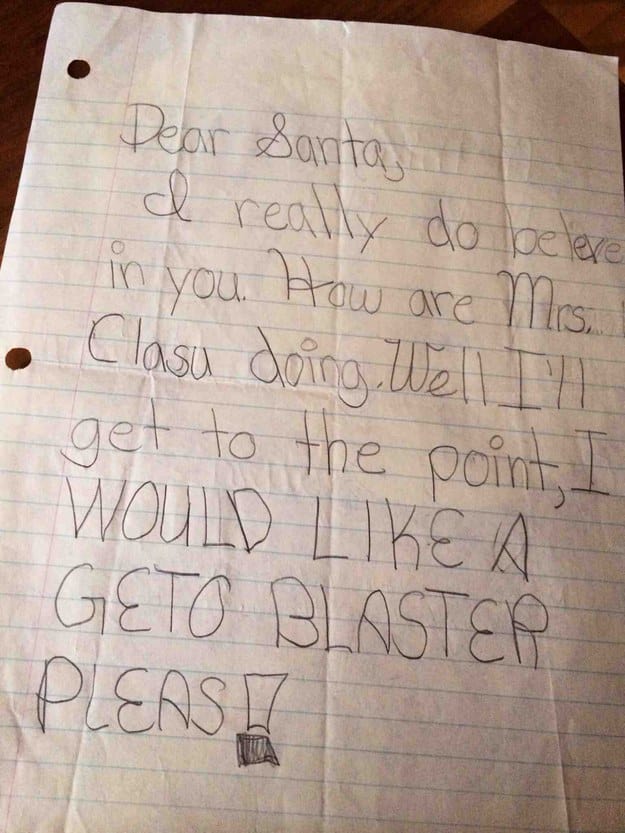 Dear Santa,
I really do beleve
in you. How are Mrs.
Clasu doing. Well I'll
get to the point, I
WOULD LIKE A
GETO BLASTER
PLEAS!